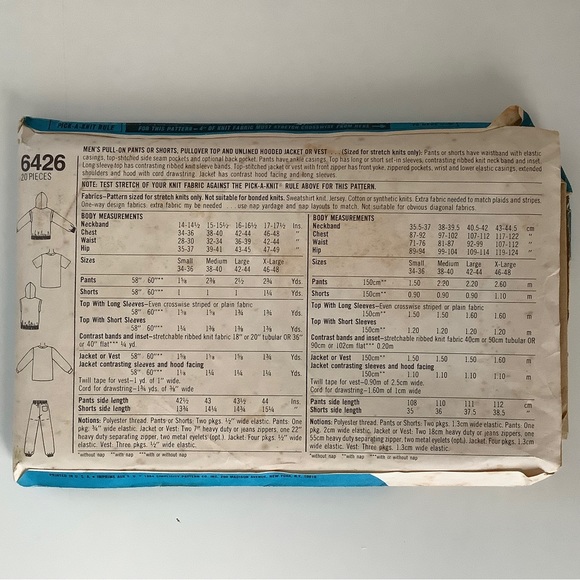 PICK-A-KNIT RULE
FOR THIS PATTERN
6426
20 PIECES
MEN'S PULL-ON PANTS OR SHORTS, PULLOVER TOP AND UNLINED HOODED JACKET OR VEST . . . (Sized for stretch knits only): Pants or shorts have waistband with elastic
casings, top-stitched side seam pockets and optional back pocket. Pants have ankle casings. Top has long or short set-in sleeves, contrasting ribbed knit neck band and inset.
Long sleeve top has contrasting ribbed knit sleeve bands. Top-stitched jacket or vest with front zipper has front yoke, zippered pockets, wrist and lower elastic casings, extended
shoulders and hood with cord drawstring. Jacket has contrast hood facing and long sleeves.
NOTE: TEST STRETCH OF YOUR KNIT FABRIC AGAINST THE PICK-A-KNIT® RULE ABOVE FOR THIS PATTERN.
Fabrics—Pattern sized for stretch knits only. Not suitable for bonded knits. Sweatshirt knit, Jersey. Cotton or synthetic knits. Extra fabric needed to match plaids and stripes.
One-way design fabrics, extra fabric may be needed . . . use nap yardage and nap layouts to match. Not suitable for obvious diagonal fabrics.
BODY MEASUREMENTS
Neckband 14-14½ 15-15½ 16-16½ 17-17½ Ins.
Chest 34-36 38-40 42-44 46-48 "
Waist 28-30 32-34 36-39 42-44 "
Hip 35-37 39-41 43-45 47-49 "
Sizes Small Medium Large X-Large
34-36 38-40 42-44 46-48
Pants 58" 60"*** 1⅝ 2⅜ 2½ 2¾ Yds.
Shorts 58" 60"*** 1 1 1 1¼ Yds.
Top With Long Sleeves—Even crosswise striped or plain fabric
58" 60"*** 1⅝ 1⅝ 1¾ 1¾ Yds.
Top With Short Sleeves
58" 60"*** 1¼ 1⅜ 1⅜ 1⅜ Yds.
Contrast bands and inset—stretchable ribbed knit fabric 18" or 20" tubular OR 36"
or 40" flat*** ¼ yd.
Jacket or Vest 58" 60"*** 1⅝ 1⅝ 1¾ Yds.
Jacket contrasting sleeves and hood facing
58" 60"*** 1¼ 1¼ 1¼ Yds.
Twill tape for vest—1 yd. of 1" wide.
Cord for drawstring—1¾ yds. of ⅜" wide
Pants side length 42½ 43 43½ 44 Ins.
Shorts side length 13¾ 14¼ 14¾ 15¼ "
Notions: Polyester thread. Pants or Shorts: Two pkgs. ½" wide elastic. Pants: One
pkg. ¾" wide elastic. Jacket or Vest: Two 7" heavy duty or jeans zippers, one 22"
heavy duty separating zipper, two metal eyelets (opt.). Jacket: Four pkgs. ½" wide
elastic. Vest: Three pkgs. ½" wide elastic.
*without nap **with nap ***with or without nap
BODY MEASUREMENTS
Neckband 35.5-37 38-39.5 40.5-42 43-44.5 cm
Chest 87-92 97-102 107-112 117-122 "
Waist 71-76 81-87 92-99 107-112 "
Hip 89-94 99-104 109-114 119-124 "
Sizes Small Medium Large X-Large
34-36 38-40 42-44 46-48
Pants 150cm** 1.50 2.20 2.20 2.60 m
Shorts 150cm** 0.90 0.90 0.90 1.10 m
Top With Long Sleeves—Even crosswise striped or plain fabric
150cm** 1.50 1.50 1.60 1.60 m
Top With Short Sleeves
150cm** 1.20 1.20 1.20 1.20 m
Contrast bands and inset—stretchable ribbed knit fabric 40cm or 90cm tubular OR
90cm or 102cm flat*** 0.20m
Jacket or Vest 150cm** 1.50 1.50 1.50 1.60 m
Jacket contrasting sleeves and hood facing
150cm** 1.10 1.10 1.10 1.10 m
Twill tape for vest—0.90m of 2.5cm wide.
Cord for drawstring—1.60m of 1cm wide
Pants side length 108 110 111 112 cm
Shorts side length 35 36 37.5 38.5 "
Notions: Polyester thread. Pants or Shorts: Two pkgs. 1.3cm wide elastic. Pants: One
pkg. 2cm wide elastic. Jacket or Vest: Two 18cm heavy duty or jeans zippers, one
55cm heavy duty separating zipper, two metal eyelets (opt.). Jacket: Four pkgs. 1.3cm
wide elastic. Vest: Three pkgs. 1.3cm wide elastic.
*without nap **with nap ***with or without nap